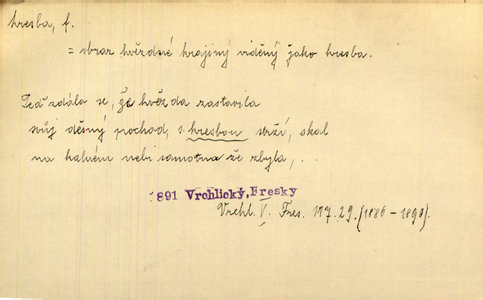 kresba, f.
= obraz hvězdné krajiny viděný jako kresba.
Teď zdálo se, že hvězda zastavila
svůj děsný pochod, s kresbou strží, skal
na kalném nebi samotna že zbyla, . .
1891 Vrchlický, Fresky
Vrchl. V. Fres. 117. 29. (1886–1890).